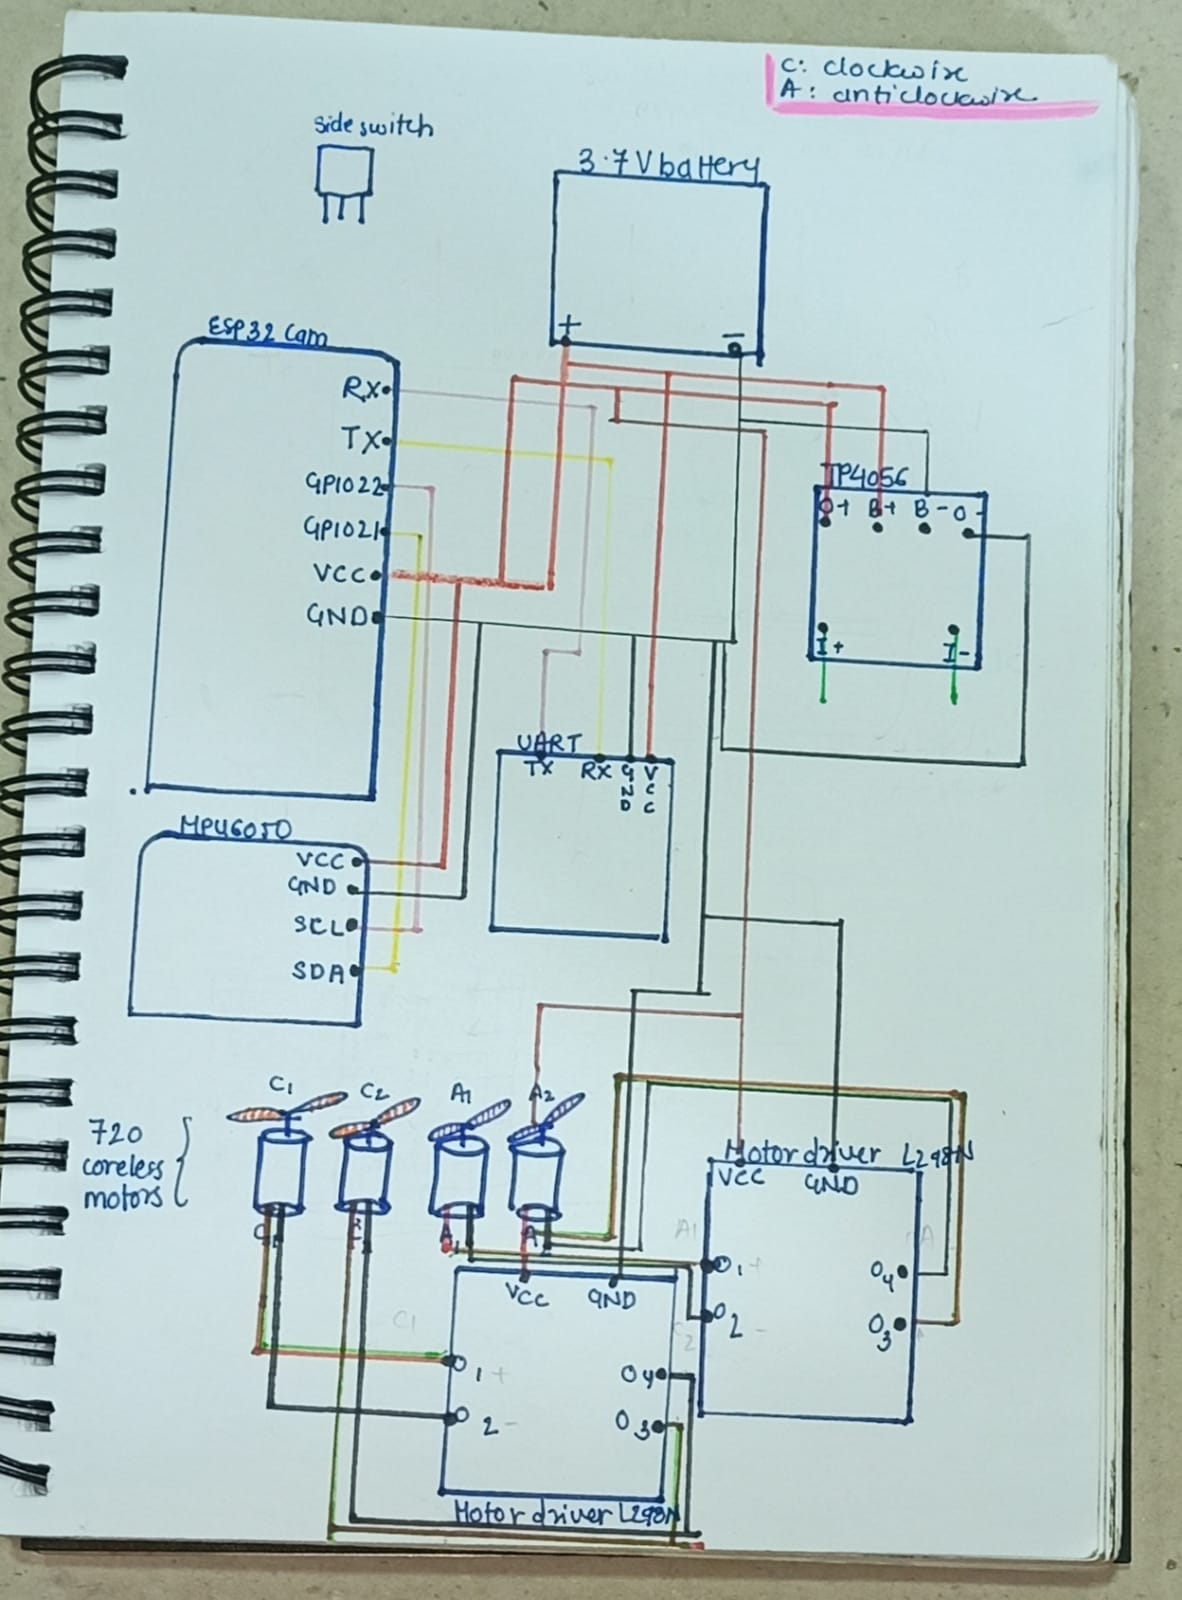 C: clockwise
A: anticlockwise
side switch
3.7V battery
+
-
ESP32 Cam
RX
TX
GPIO22
GPIO21
VCC
GND
TP4056
O+ B+ B- O-
I+ I-
UART
TX RX GND VCC
MPU6050
VCC
GND
SCL
SDA
C1 C2 A1 A2
720
coreless
motors
Motor driver L298N
VCC GND
A1 A
O1 +
O2 -
O4
O3
VCC GND
C1 C2
O1 +
O2 -
O4
O3
Motor driver L298N